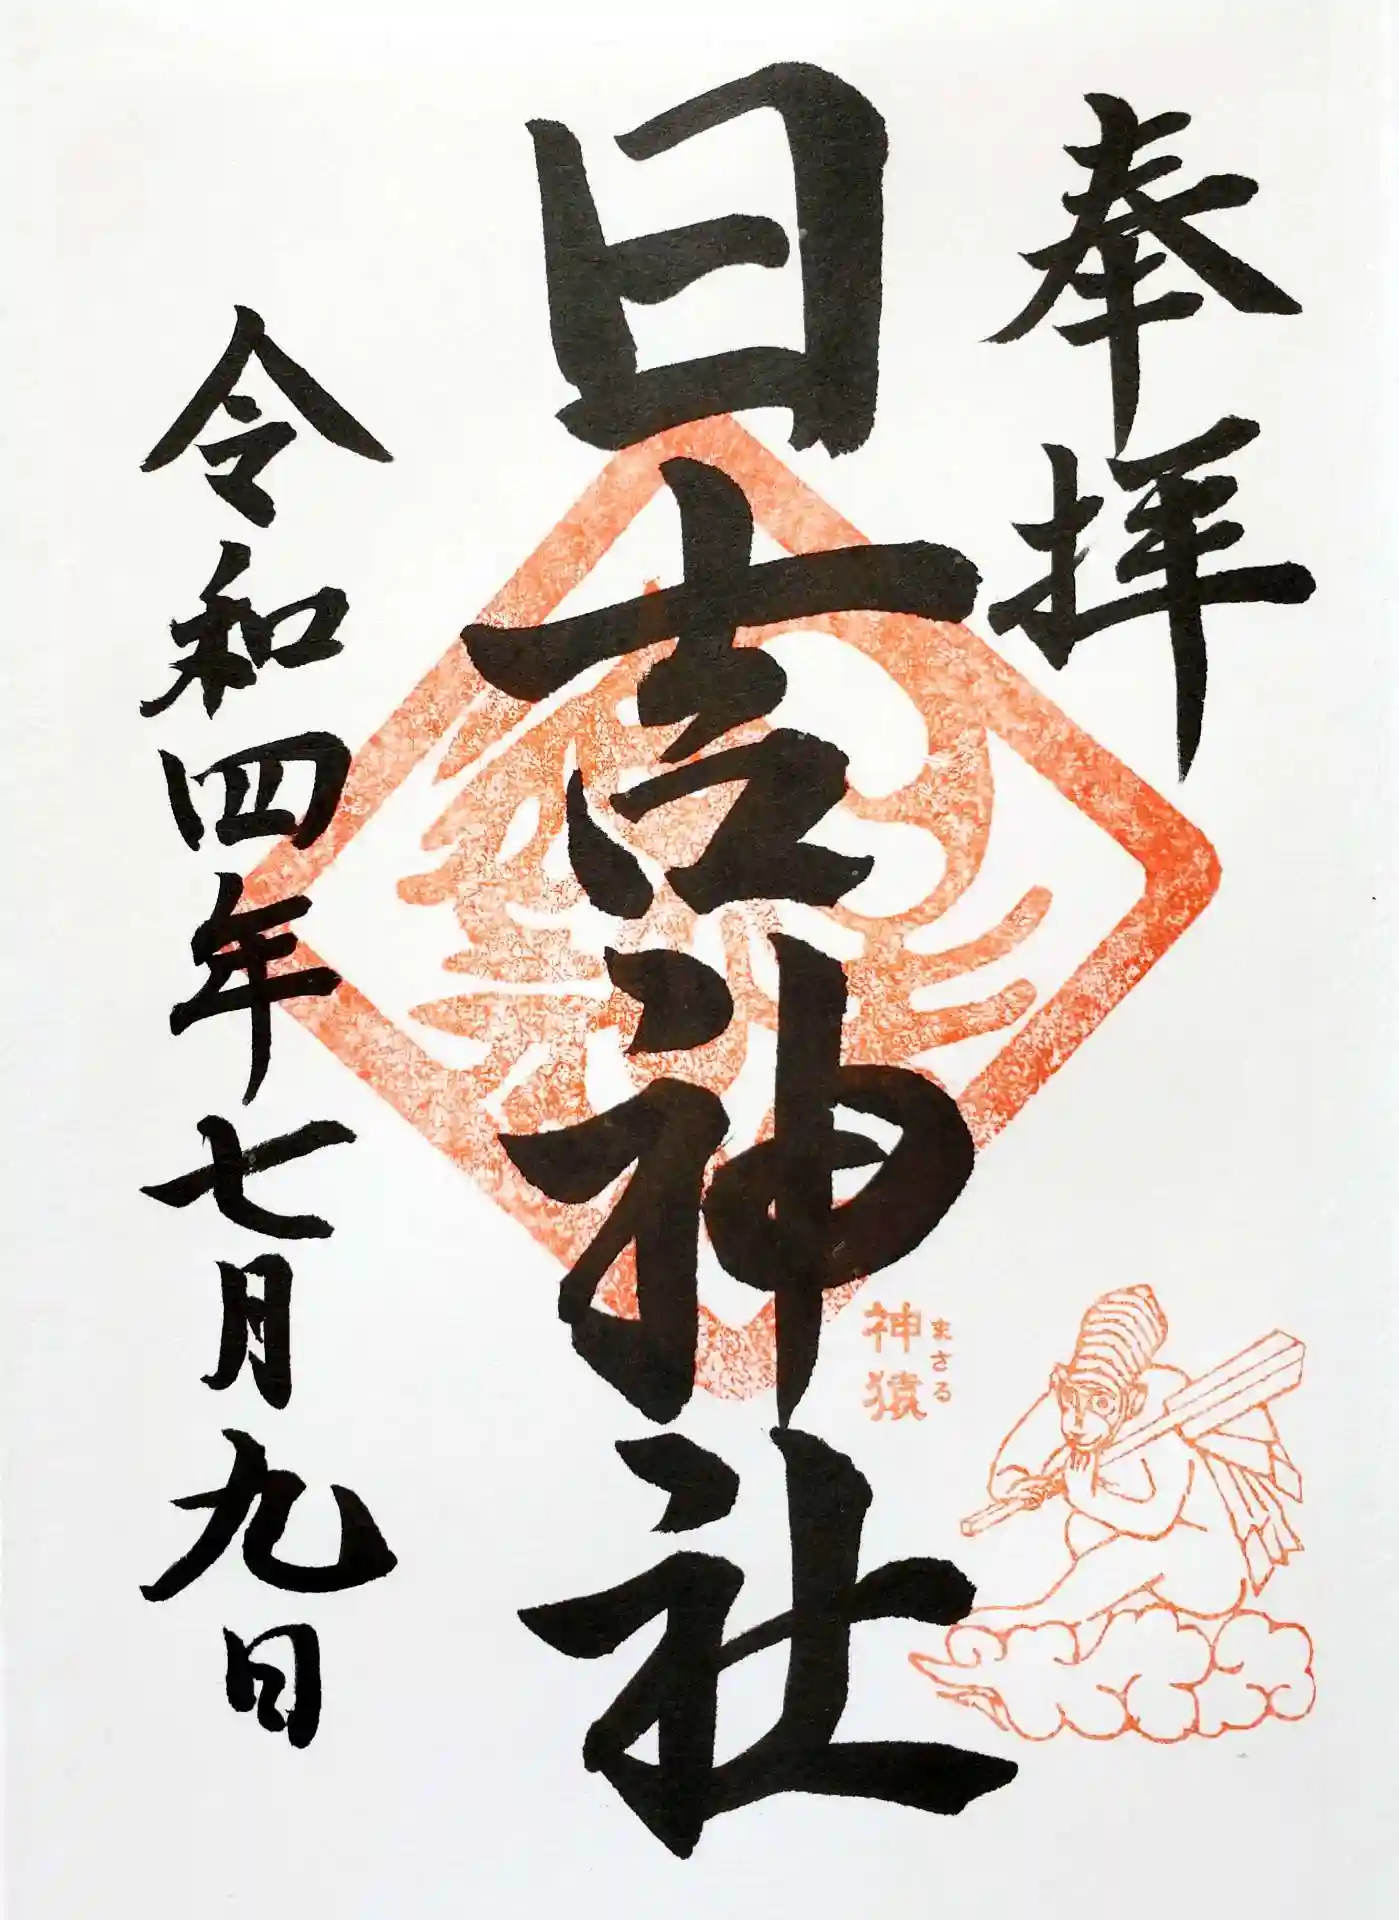 奉拝
日吉神社
神猿
まさる
令和四年七月九日